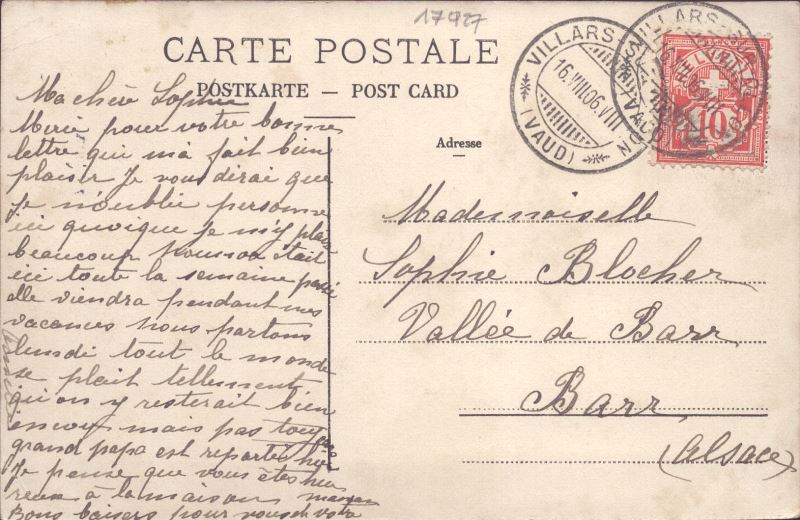 17927
CARTE POSTALE
POSTKARTE – POST CARD
VILLARS
16.VIII.06.VIII
(VAUD)
HELVETIA
10
Adresse
Ma chère Sophie
Merci pour votre bonne
lettre qui m'a fait bien
plaisir Je vous dirai que
je n'oublie personne
ici quoique je m'y plais
beaucoup était
ici toute la semaine passé
elle viendra pendant mes
vacances nous partons
lundi tout le monde
se plait tellement
qu'on y resterait bien
encore mais pas
grand papa est reparti hier
Je pense que vous êtes heu
reux à la maison maman
Bons baisers pour vous de votre
Mademoiselle
Sophie Blocher
Vallée de Barr
Barr
(Alsace)